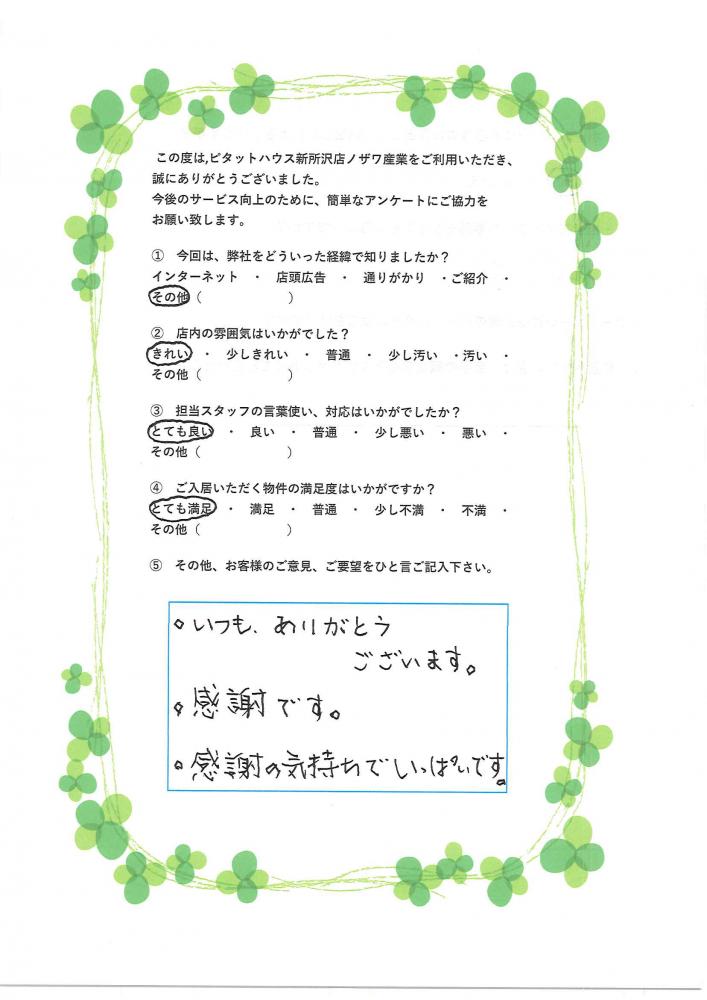 この度は,ピタットハウス新所沢店ノザワ産業をご利用いただき、
誠にありがとうございました。
今後のサービス向上のために、簡単なアンケートにご協力を
お願い致します。
① 今回は、弊社をどういった経緯で知りましたか？
インターネット ・ 店頭広告 ・ 通りがかり ・ご紹介 ・
その他（ ）
② 店内の雰囲気はいかがでした？
きれい ・ 少しきれい ・ 普通 ・ 少し汚い ・汚い ・
その他（ ）
③ 担当スタッフの言葉使い、対応はいかがでしたか？
とても良い ・ 良い ・ 普通 ・ 少し悪い ・ 悪い ・
その他（ ）
④ ご入居いただく物件の満足度はいかがですか？
とても満足 ・ 満足 ・ 普通 ・ 少し不満 ・ 不満 ・
その他（ ）
⑤ その他、お客様のご意見、ご要望をひと言ご記入下さい。
。いつも、ありがとう
ございます。
。感謝です。
。感謝の気持ちでいっぱいです。